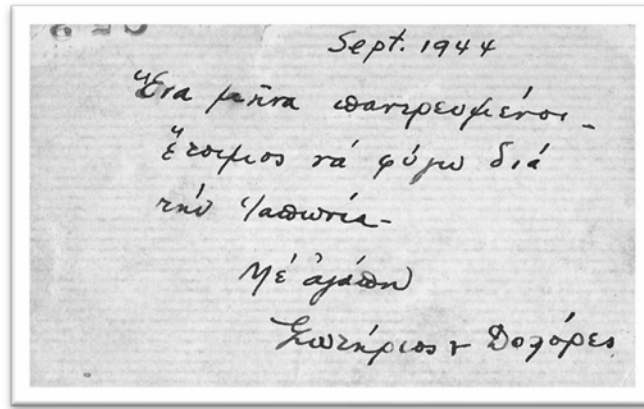 Sept. 1944
Ἕνα μῆνα παντρευμένοι -
ἕτοιμος νά φύγω διά
τήν Ἰαπωνία -
Μέ ἀγάπη
Σωτήριος & Δολόρες